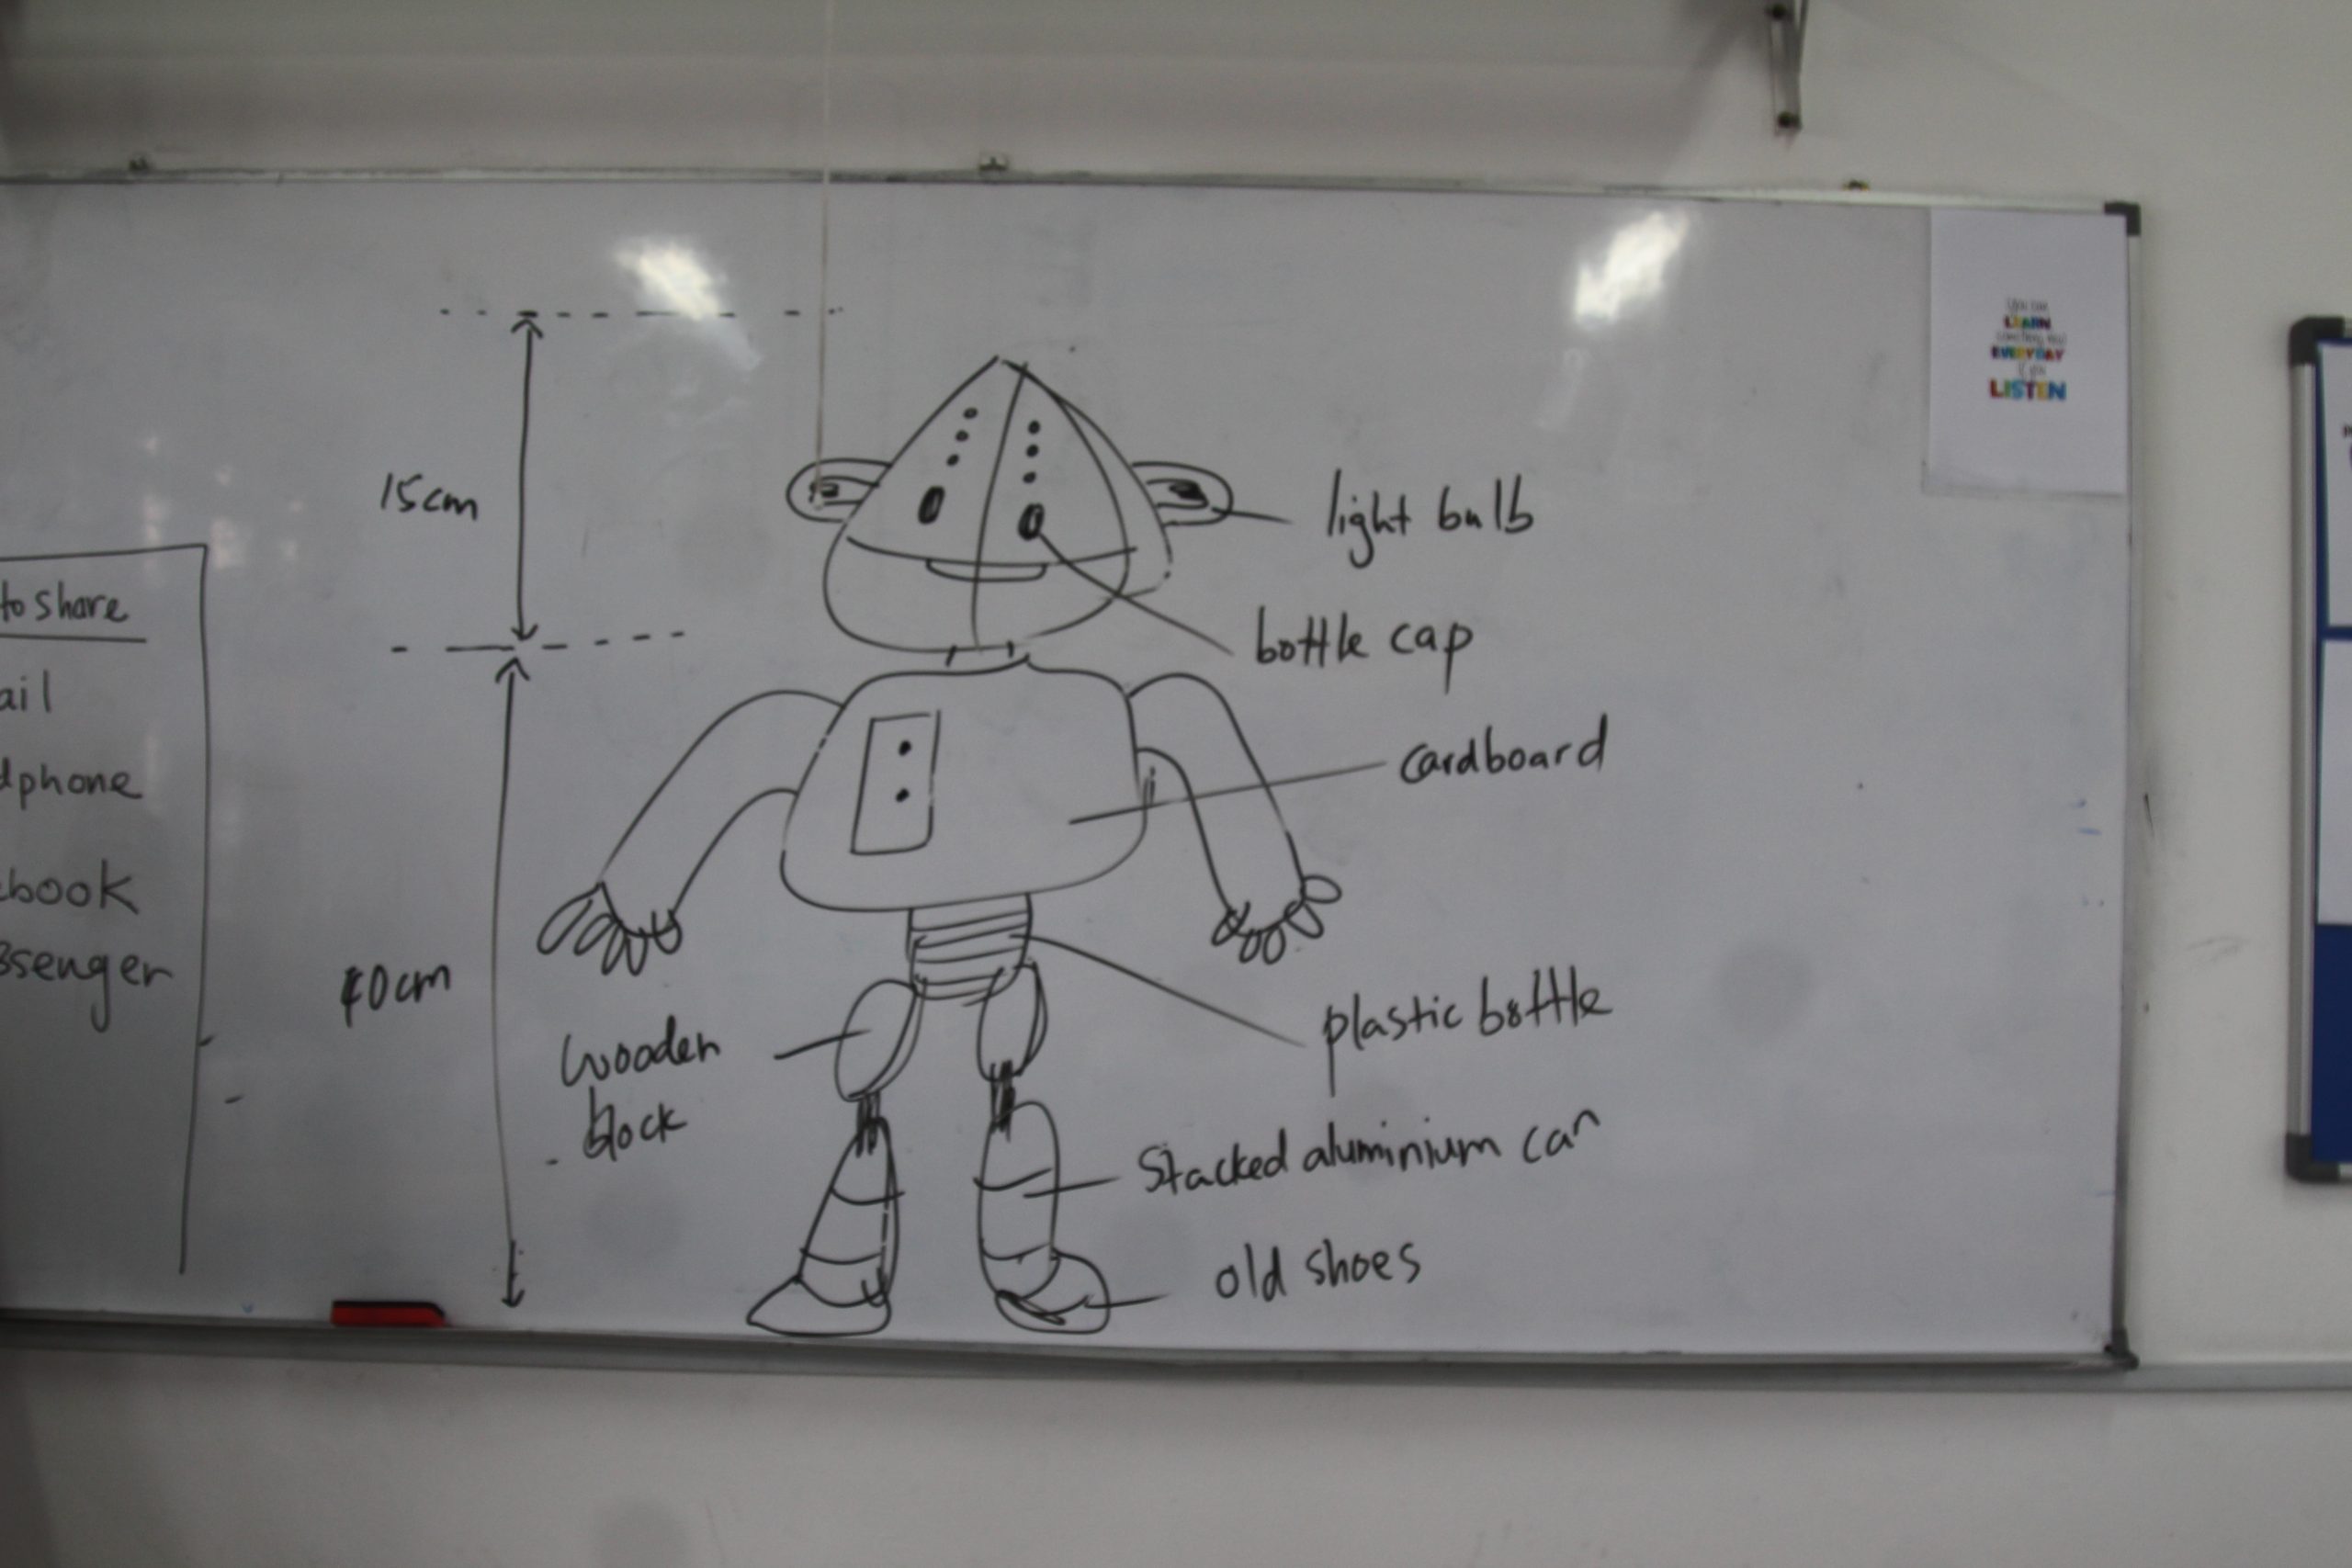 to share
ail
dphone
ebook
ssenger
15cm
40cm
light bulb
bottle cap
cardboard
plastic bottle
wooden
block
Stacked aluminium can
old shoes
LEARN
EVERYDAY
LISTEN